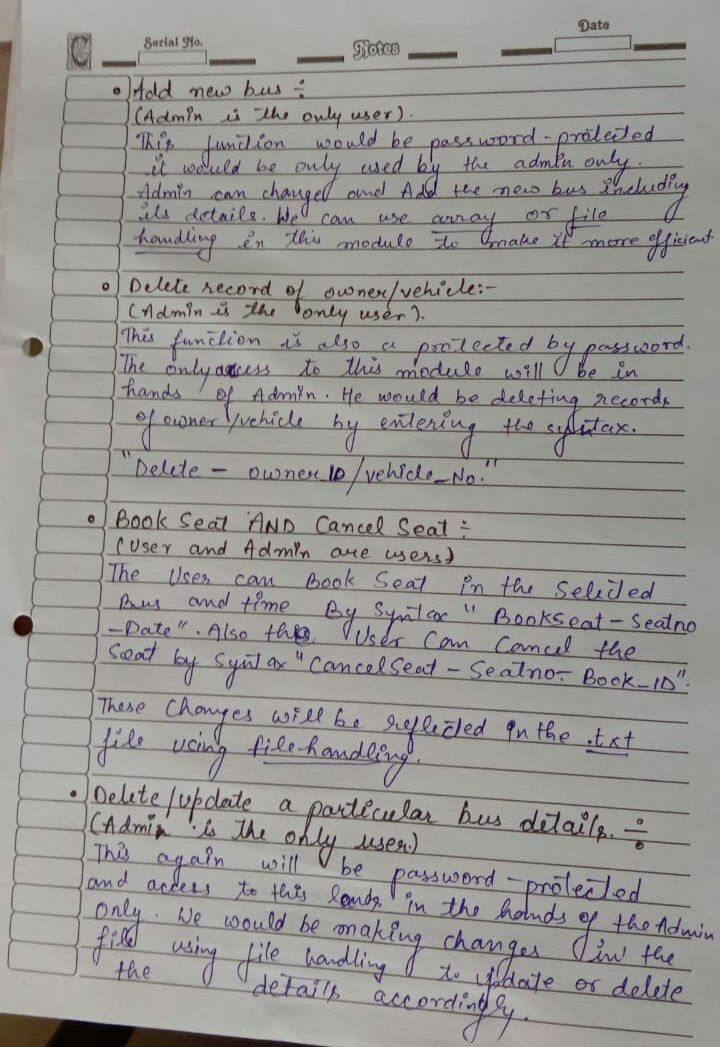 Serial No.
Notes
Date
• Add new bus ÷
(Admin is the only user).
This function would be password-protected
it would be only used by the admin only.
Admin can change and Add the new bus including
its details. We can use array or file
handling in this module to make it more efficient
• Delete record of owner/vehicle:-
(Admin is the only user).
This function is also a protected by password.
The only access to this module will be in
hands of Admin. He would be deleting records
of owner/vehicle by entering the syntax.
"Delete - owner ID/vehicle_No."
• Book Seat AND Cancel Seat ÷
(User and Admin are users)
The User can Book Seat in the Selected
Bus and time By Syntax "Bookseat - Seatno
-Date". Also the User Can Cancel the
Seat by Syntax "CancelSeat - Seatno- Book_ID".
These Changes will be reflected in the .txt
file using file-handling.
• Delete/update a particular bus details. ÷
(Admin is the only user)
This again will be password-protected
and access to this lends in the hands of the Admin
only. We would be making changes in the
file using file handling to update or delete
the details accordingly.